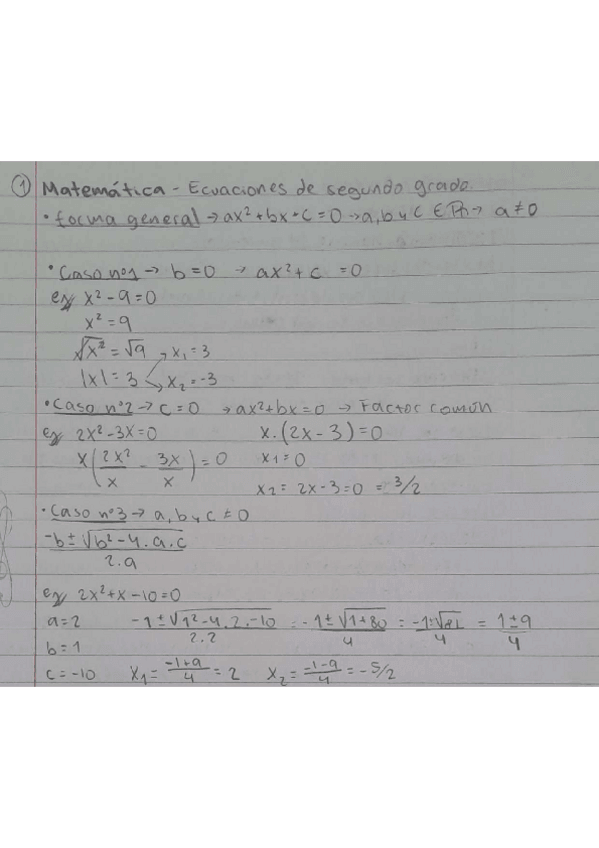 ① Matemática - Ecuaciones de segundo grado.
• forma general → ax² + bx + c = 0 → a, b y c ∈ ℝ → a ≠ 0
• Caso nº1 → b = 0 → ax² + c = 0
ej x² - 9 = 0
x² = 9
√x² = √9 → x₁ = 3
|x| = 3 → x₂ = -3
• Caso nº2 → c = 0 → ax² + bx = 0 → Factor común
ej 2x² - 3x = 0 x. (2x - 3) = 0
x (2x²/x - 3x/x) = 0 x₁ = 0
x₂ = 2x - 3 = 0 = 3/2
• Caso nº3 → a, b y c ≠ 0
-b ± √b² - 4 . a . c
2 . a
ej 2x² + x - 10 = 0
a = 2 -1 ± √1² - 4 . 2 . -10 / 2 . 2 = -1 ± √1 + 80 / 4 = -1 ± √81 / 4 = 1 ± 9 / 4
b = 1
c = -10 x₁ = -1 + 9 / 4 = 2 x₂ = -1 - 9 / 4 = -5/2